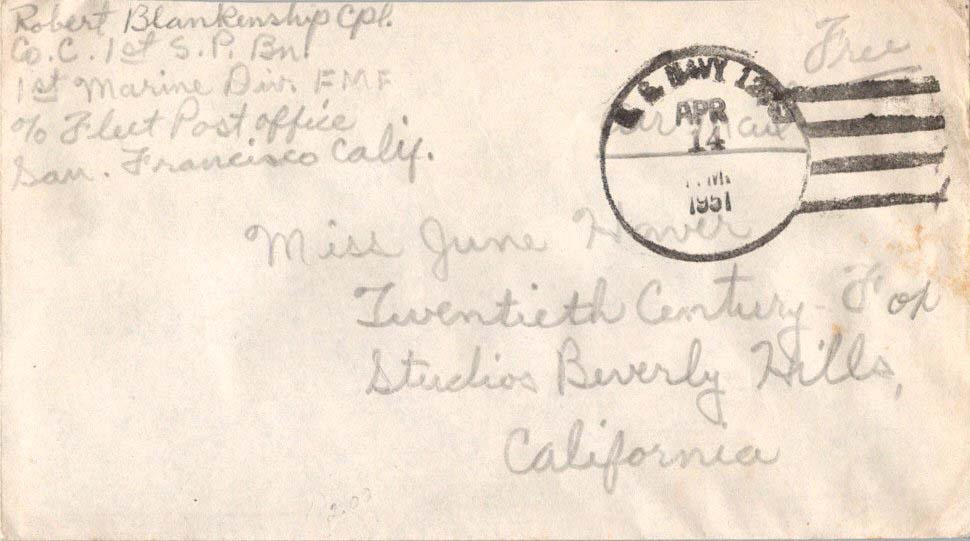 Robert Blankenship Cpl.
Co. C. 1st S. P. Bn.
1st Marine Div. FMF
c/o Fleet Post office
San. Francisco Calif.
Free
Air Mail
NAVY
APR
14
1951
Miss June Haver
Twentieth Century-Fox
Studios Beverly Hills,
California
2.00